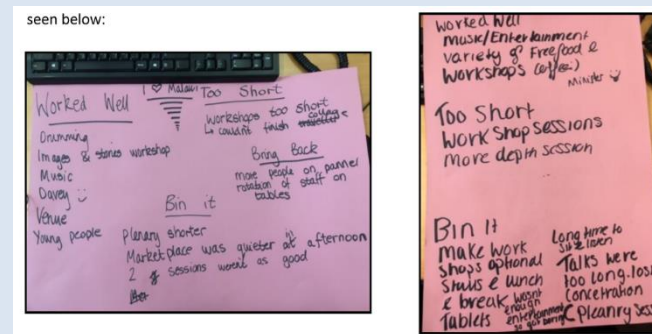 seen below:
I ♡ Malawi
Worked Well
Drumming
Images & stories workshop
Music
Davey
Venue
Young people
Too Short
Workshops too short
↳ couldn't finish
Bring Back
more people on pannel
rotation of staff on
tables
Bin it
Plenary shorter
Marketplace was quieter in afternoon
2 of sessions werent as good
Worked Well
Music/Entertainment
Variety of Free food &
Workshops
Minister
Too Short
Work Shop sessions
More depth session
Bin It
Make work
shops optional
Stalls & lunch
& break wasnt
enough
Tablets entertainment
so got boring
Long time to
sit & listen
Talks were
too long. loss
Concetration